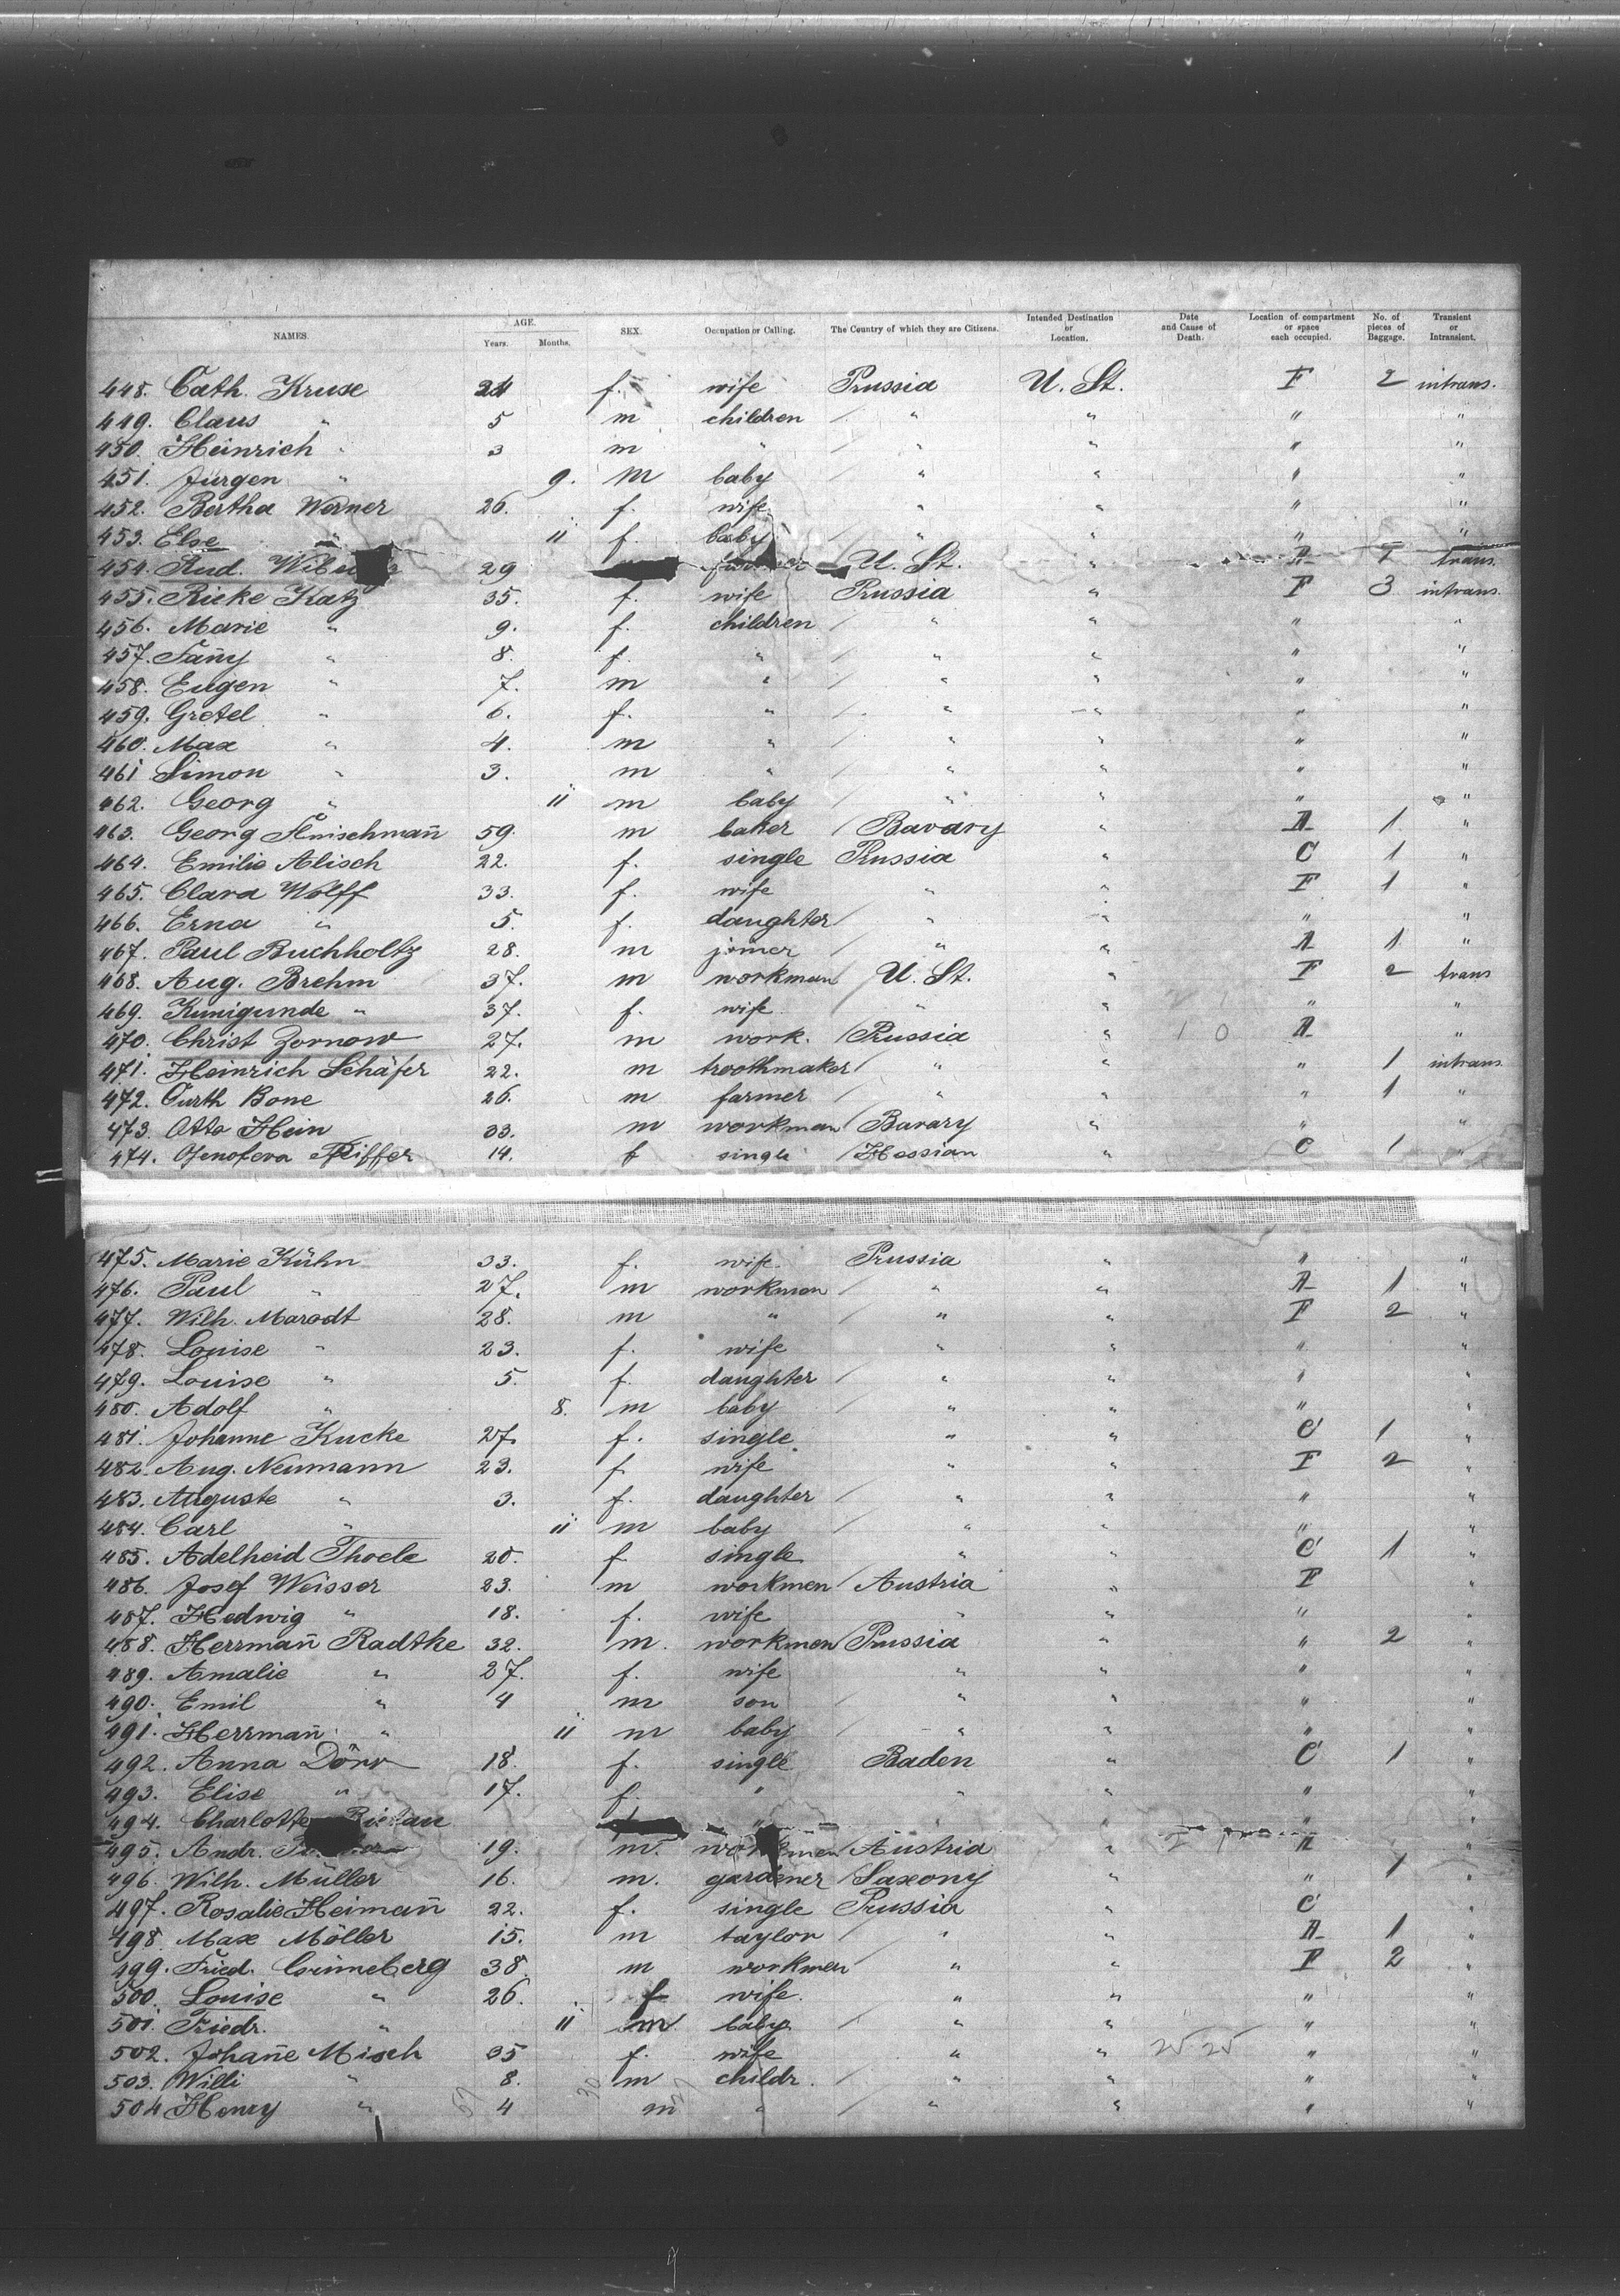 NAMES. AGE. Years. Months. SEX. Occupation or Calling. The Country of which they are Citizens. Intended Destination or Location. Date and Cause of Death. Location of compartment or space each occupied. No. of pieces of Baggage. Transient or Intransient.
448. Cath. Kruse 24 f. wife Prussia U. St. F 2 intrans.
449. Claus " 5 m children / " " " "
450. Heinrich " 3 m " / " " " "
451. Jürgen " 9. m baby / " " " "
452. Bertha Werner 26. f. wife " " " "
453. Else " 11 f. baby / " " " "
454. Rud. 29 U. St. " A 1 trans.
455. Rieke Katz 35. f. wife Prussia " F 3 intrans.
456. Marie " 9. f. children / " " " "
457. Fañy " 8. f. " / " " " "
458. Eugen " 7. m " / " " " "
459. Gretel " 6. f. " / " " " "
460. Max " 4. m " / " " " "
461 Simon " 3. m " / " " " "
462. Georg " 11 m baby / " " " "
463. Georg Fleischmañ 59. m baker / Bavary " A 1. "
464. Emilie Alisch 22. f. single Prussia " C 1 "
465. Clara Wolff 33. f. wife " " F 1 "
466. Erna " 5. f. daughter / " " " "
467. Paul Buchholtz 28. m joiner / " " A 1 "
468. Aug. Brehm 37. m workman / U. St. " F 2 trans
469. Kunigunde " 37. f. wife " " " "
470. Christ Zornow 27. m work. / Prussia " 1 0 A "
471. Heinrich Schäfer 22. m troothmaker / " " " 1 intrans.
472. Curth Bone 26. m farmer / " " " 1 "
473. Otto Hein 33. m workman / Bavary " " "
474. Genofeva Pfeiffer 14. f single / Hessian " C 1 "
475. Marie Kühn 33. f. wife. Prussia " " "
476. Paul " 27. m workman / " " A 1 "
477. Wilh. Marodt 28. m " / " " F 2 "
478. Louise " 23. f. wife " " " "
479. Louise " 5. f. daughter / " " " "
480. Adolf " 8. m baby / " " " "
481. Johanne Kucke 27. f. single. " " C 1 "
482. Aug. Neumann 23. f wife " " F 2 "
483. Auguste " 3. f. daughter / " " " "
484. Carl " 11 m baby / " " " "
485. Adelheid Thoele 20. f single " " C 1 "
486. Josef Weisser 23. m workmen / Austria " F "
487. Hedwig " 18. f. wife " " " "
488. Herrmañ Radtke 32. m. workmen / Prussia " " 2 "
489. Amalie " 27. f. wife " " " "
490. Emil " 4 m son / " " " "
491. Herrmañ " 11 m baby / " " " "
492. Anna Dörr 18. f. single Baden " C 1 "
493. Elise " 17. f. " " " " "
494. Charlotte " " " "
495. Andr. 19. m. workmen / Austria " A "
496. Wilh. Müller 16. m. gardener / Saxony " " 1 "
497. Rosalie Heimañ 22. f. single Prussia " C "
498. Max Möller 15. m taylor / " " A 1 "
499. Fried. Grünneberg 38. m workmen / " " F 2 "
500. Louise " 26. f wife. " " " "
501. Friedr. " 11 m baby. / " " " "
502. Johañe Misch 35 f. wife " " 25 25 " "
503. Willi " 8. m childr. / " " " "
504 Henry " 4 m " / " " " "